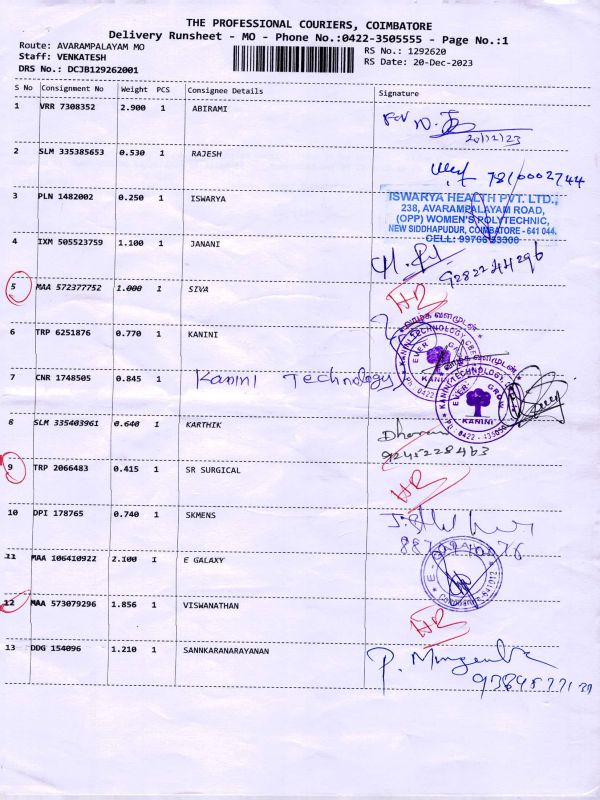 THE PROFESSIONAL COURIERS, COIMBATORE
Delivery Runsheet - MO - Phone No.:0422-3505555 - Page No.:1
Route: AVARAMPALAYAM MO
RS No.: 1292620
Staff: VENKATESH
RS Date: 20-Dec-2023
DRS No.: DCJB129262001
S No Consignment No Weight PCS Consignee Details Signature
1 VRR 7308352 2.900 1 ABIRAMI
For
20/12/23
2 SLM 335385653 0.530 1 RAJESH
7810002744
3 PLN 1482002 0.250 1 ISWARYA
ISWARYA HEALTH PVT. LTD.,
238, AVARAMPALAYAM ROAD,
(OPP) WOMEN'S POLYTECHNIC,
NEW SIDDHAPUDUR, COIMBATORE - 641 044.
CELL: 99766 33300
4 IXM 505523759 1.100 1 JANANI
9282244296
5 MAA 572377752 1.000 1 SIVA
6 TRP 6251876 0.770 1 KANINI
7 CNR 1748505 0.845 1 Kanini Technology
EVER GROW
KANINI
8 SLM 335403961 0.640 1 KARTHIK
9245228463
9 TRP 2066483 0.415 1 SR SURGICAL
10 DPI 178765 0.740 1 SKMENS
11 MAA 106410922 2.100 1 E GALAXY
12 MAA 573079296 1.856 1 VISWANATHAN
13 DDG 154096 1.210 1 SANNKARANARAYANAN